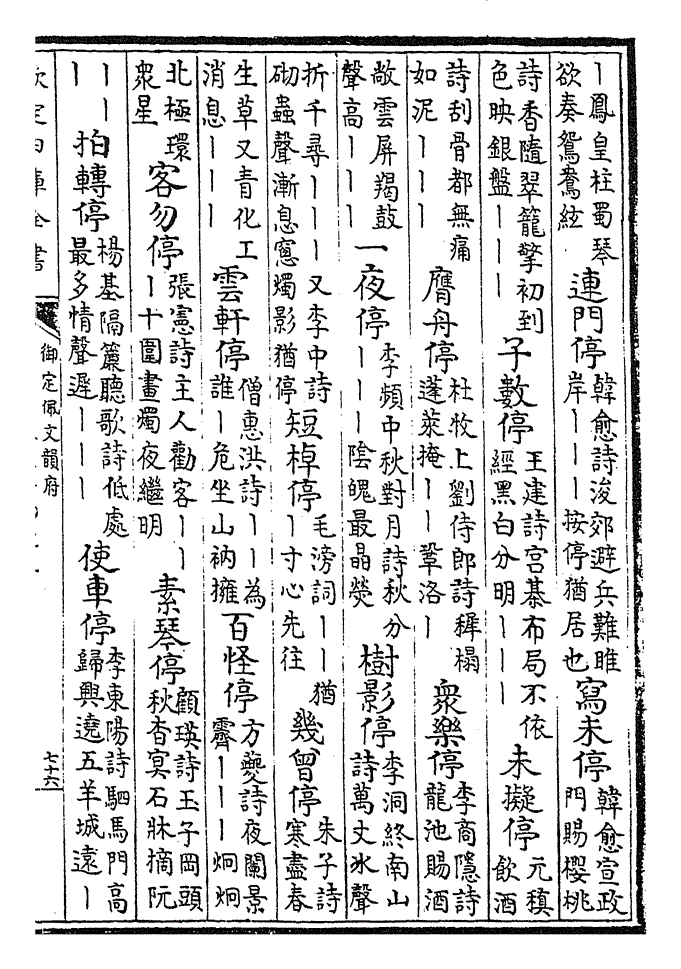 丨鳳皇柱蜀琴欲奏鴛鴦絃 連門停 韓愈詩浚郊避兵難睢岸丨丨丨按停猶居也 寫未停 韓愈宣政門賜櫻桃
詩香隨翠籠擎初到色映銀盤丨丨丨 子數停 王建詩宮棊布局不依經黑白分明丨丨丨 未擬停 元稹飲酒
詩刮骨都無痛如泥丨丨丨 膺舟停 杜牧上劉侍郎詩穉榻蓬萊掩丨丨鞏洛丨 衆樂停 李商隱詩龍池賜酒
敞雲屏羯鼓聲高丨丨丨 一夜停 李頻中秋對月詩秋分丨丨丨陰魄最晶熒 樹影停 李洞終南山詩萬丈氷聲
折千尋丨丨丨又李中詩砌蟲聲漸息窻燭影猶停 短棹停 毛滂詞丨丨猶丨寸心先往 幾曾停 朱子詩寒盡春
生草又青化工消息丨丨丨 雲軒停 僧惠洪詩丨丨為誰丨危坐山衲擁 百怪停 方夔詩夜闌景霽丨丨丨炯炯
北極環衆星 客勿停 張憲詩主人勸客丨丨丨十圍畫燭夜繼明 素琴停 顧瑛詩玉子岡頭秋杳冥石牀摘阮
丨丨丨 拍轉停 楊基隔簾聽歌詩低處最多情聲遲丨丨丨 使車停 李東陽詩駟馬門高歸興遶五羊城遠丨
欽定四庫全書
御定佩文韻府
七十六